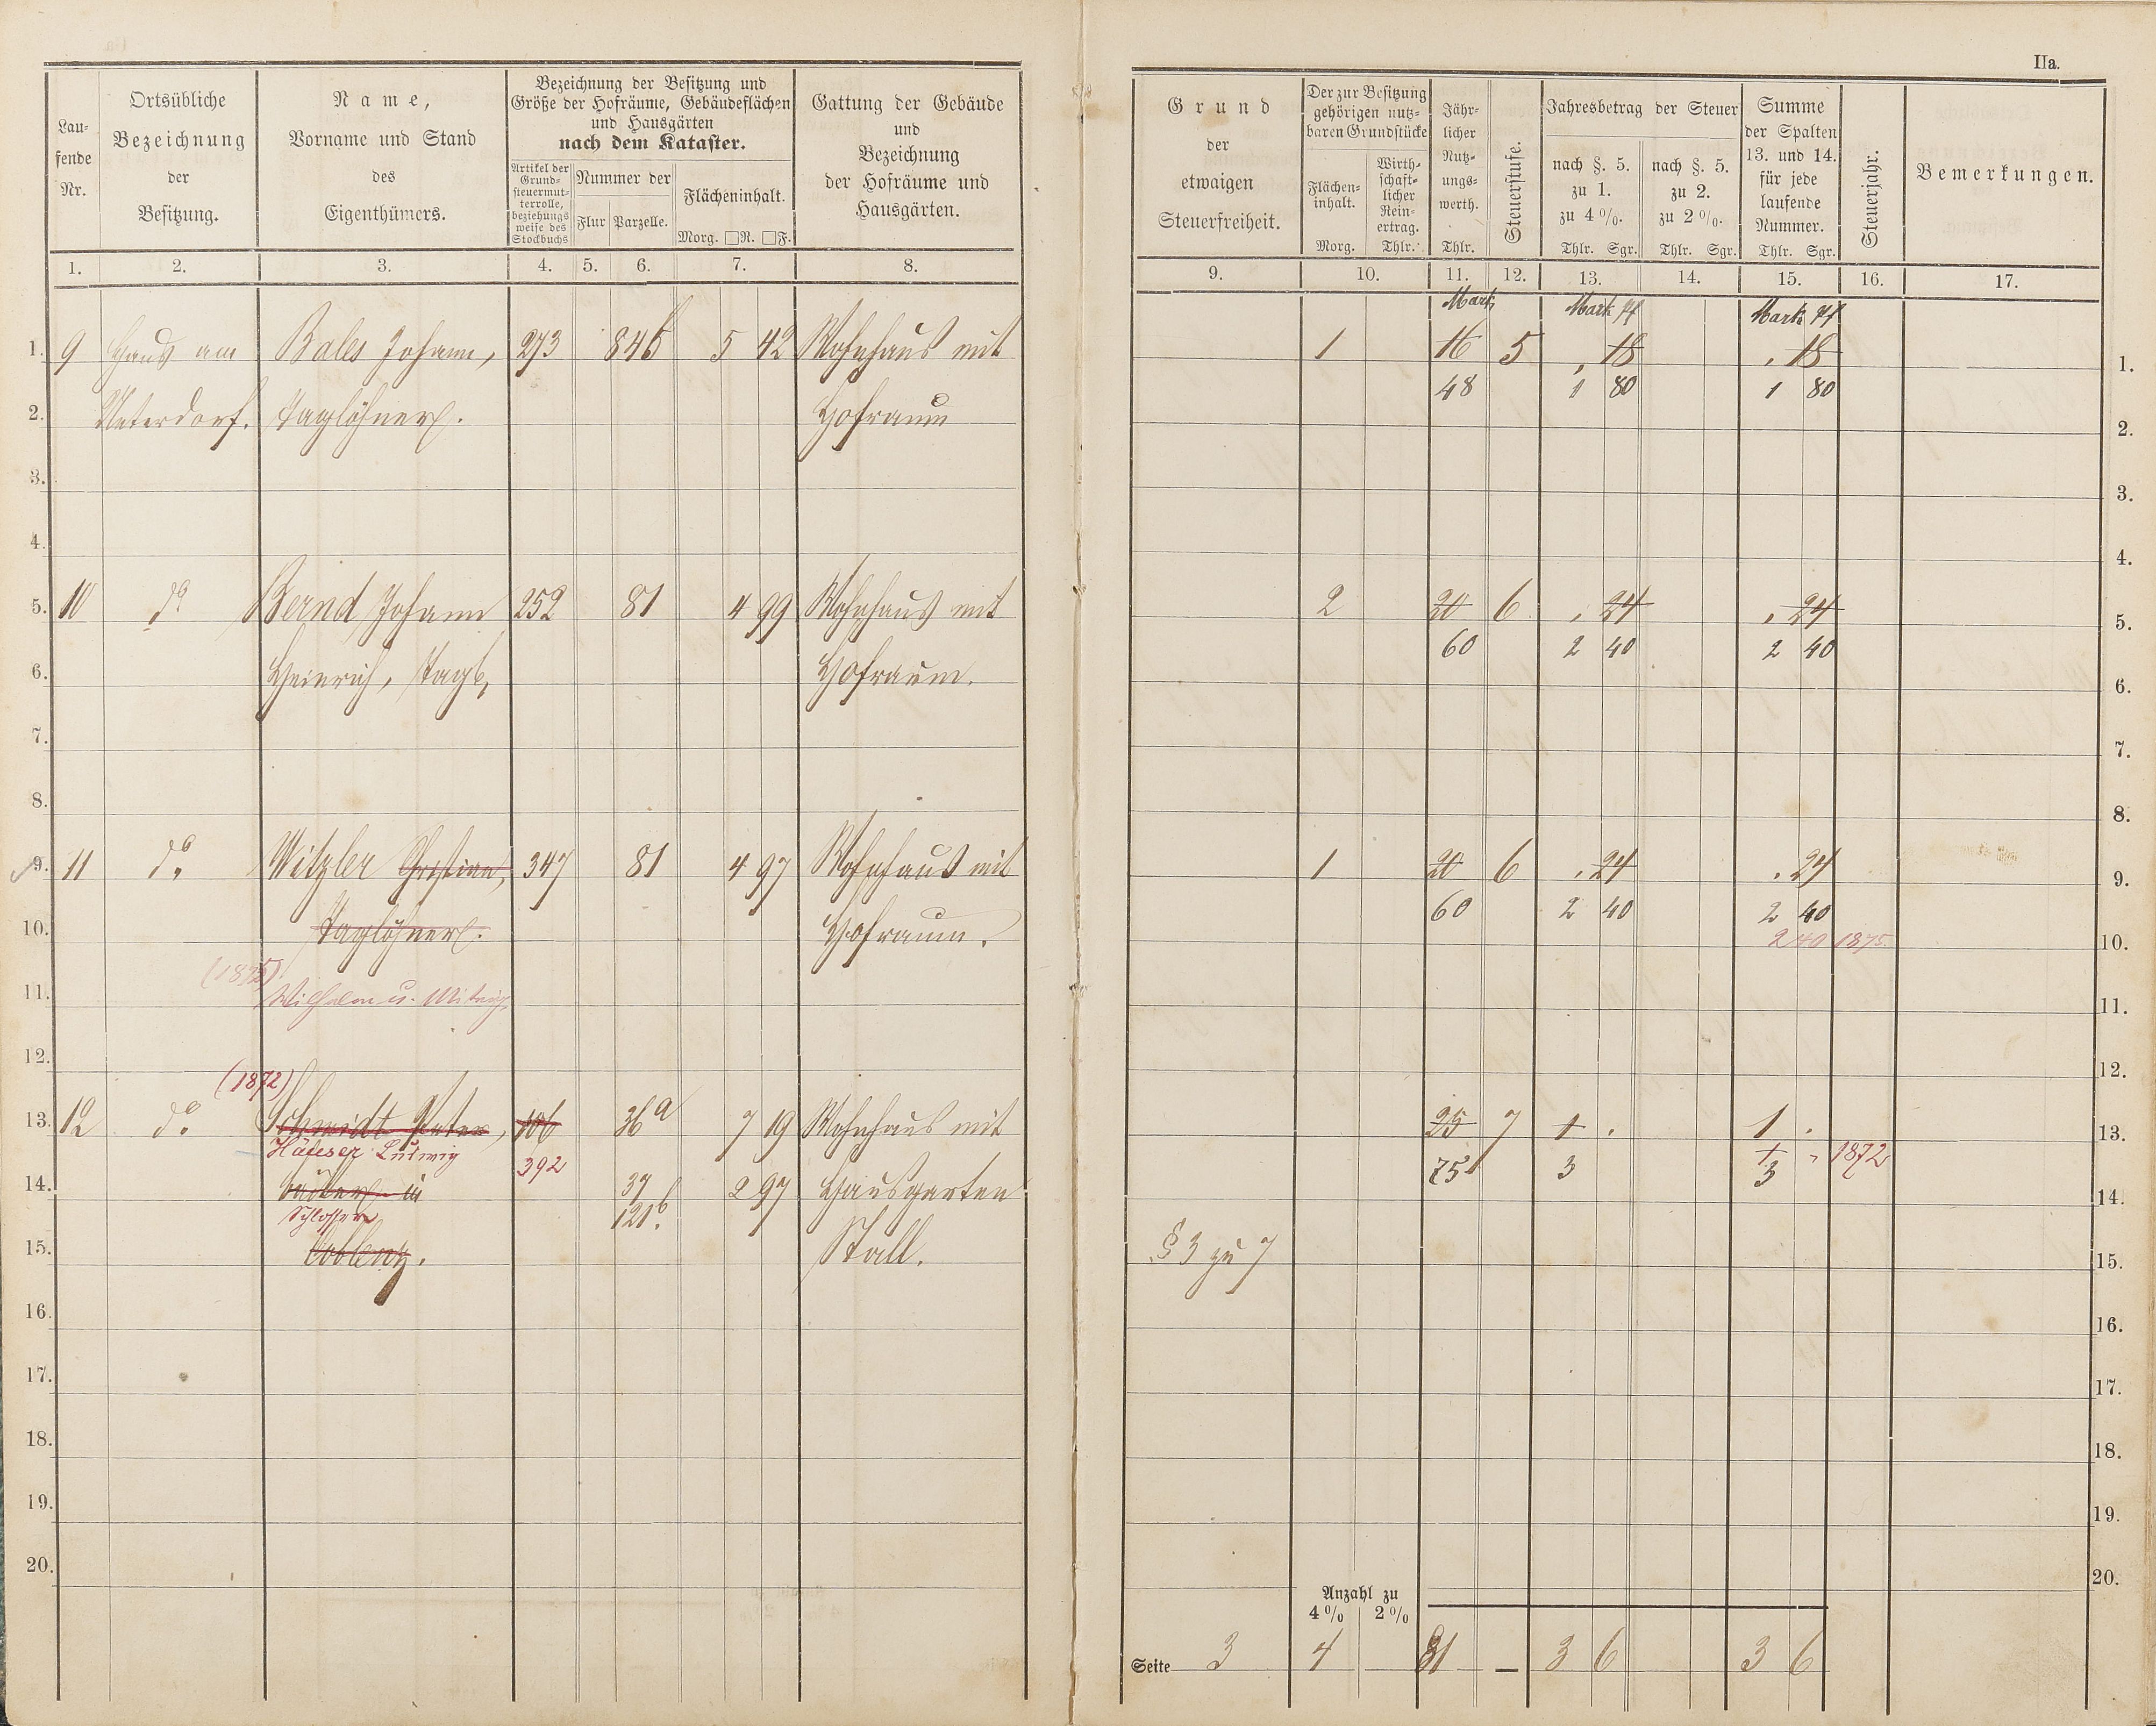 IIa.
Laufende Nr.
Ortsübliche Bezeichnung der Besitzung.
Name, Vorname und Stand des Eigenthümers.
Bezeichnung der Besitzung und Größe der Hofräume, Gebäudeflächen und Hausgärten nach dem Kataster.
Artikel der Grundsteuermutterrolle, beziehungsweise des Stockbuchs
Nummer der
Flur Parzelle.
Flächeninhalt.
Morg. □R. □F.
Gattung der Gebäude und Bezeichnung der Hofräume und Hausgärten.
Grund der etwaigen Steuerfreiheit.
Der zur Besitzung gehörigen nutzbaren Grundstücke
Flächeninhalt. Morg.
Wirthschaftlicher Reinertrag. Thlr.
Jährlicher Nutzungswerth. Thlr.
Steuerstufe.
Jahresbetrag der Steuer
nach §. 5. zu 1. zu 4 %. Thlr. Sgr.
nach §. 5. zu 2. zu 2 %. Thlr. Sgr.
Summe der Spalten 13. und 14. für jede laufende Nummer. Thlr. Sgr.
Steuerjahr.
Bemerkungen.
1. 2. 3. 4. 5. 6. 7. 8. 9. 10. 11. 12. 13. 14. 15. 16. 17.
Mark Mark Pf Mark Pf
1. 9 Haus am Bales Johann, 273 846 5 42 Wohnhaus mit 1 16 5 , 18 , 18 1.
48 1 80 1 80
2. Unterdorf. Taglöhner. Hofraum 2.
3. 3.
4. 4.
5. 10 do Bernd Johann 252 81 4 99 Wohnhaus mit 2 20 6 , 24 , 24 5.
60 2 40 2 40
6. Heinrich, Tagl. Hofraum. 6.
7. 7.
8. 8.
9. 11 do Witzler Christian, 347 81 4 97 Wohnhaus mit 1 20 6 , 24 , 24 9.
60 2 40 2 40
10. Taglöhner. Hofraum. 2 40 1875. 10.
(1875)
11. Wilhelm u. 11.
12. 12.
(1872)
13. 12 do Schmidt Peter, 106 36a 7 19 Wohnhaus mit 25 7 1 . 1 . 13.
Ludwig 392 75 3 1 " 1872
3
14. in 37 2 97 Hausgarten 14.
Schlosser 121b.
15. Coblenz. Stall. § 3 zu 7 15.
16. 16.
17. 17.
18. 18.
19. 19.
20. 20.
Anzahl zu
4 % 2 %
Seite 3 4 81 — 3 6 3 6